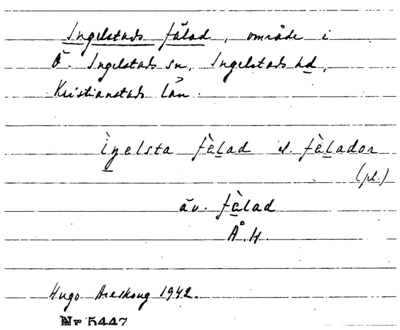 Ingelstads fälad, område i
Ö. Ingelstads sn, Ingelstads hd,
Kristianstads län.
ìŋelsta fèlad el. fèlador
(pl.)
äv. fèlad
Å.H.
Hugo Areskoug 1942.
Nr 5447